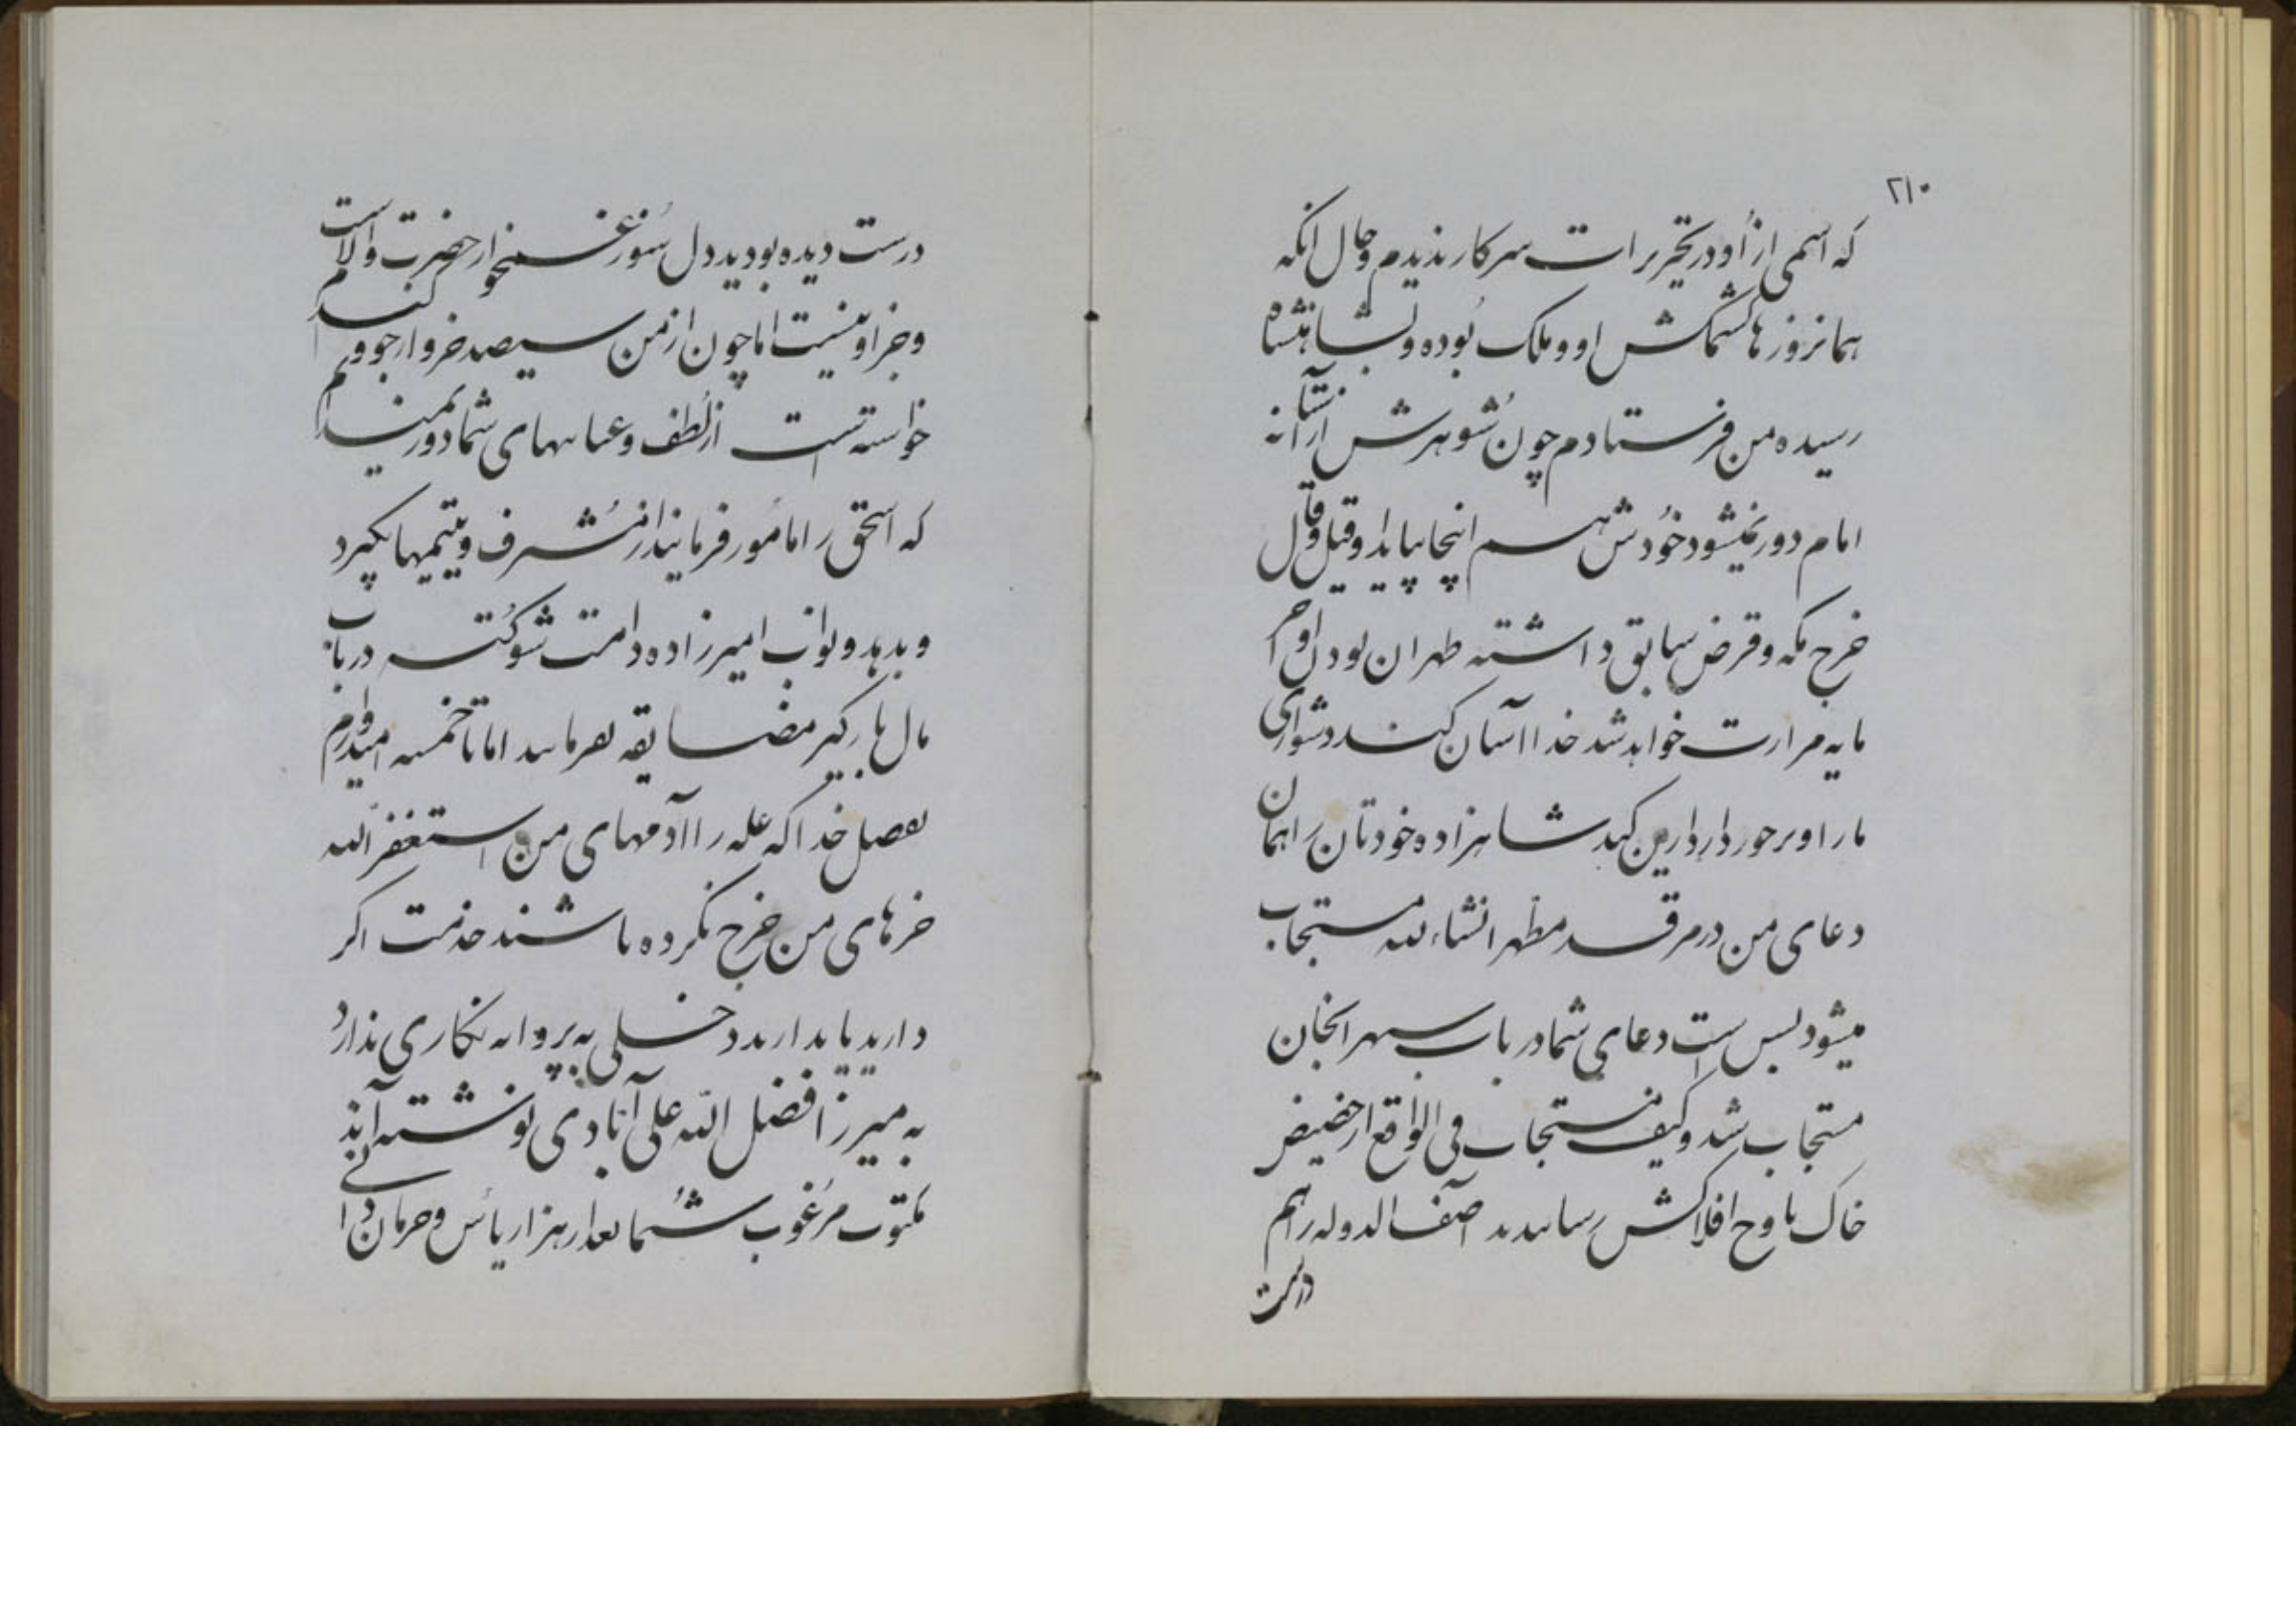 ۲۱۰
که اسمی از او در تحریرات سرکار ندیدم و حال انکه
همانروزها کشمکش او و ملک بوده و بشاهنشاه
رسیده من فرستادم چون شوهرش از آستانه
امام دور نمیشود خودش هم اینجا بیاید و قیل و قال
خرج مکه و قرض سابق داشته طهران بود ل او آخر
مایه مرارت خواهد شد خدا آسان کند دشواری
ما را و برخوردار دارین کند شاهزاده خودتان را همان
دعای من در مرقد مطهر انشاءلله مستجاب
میشود بس است دعای شما در باب سهرابخان
مستجاب شد و کیف مستجاب فی الواقع از حضیض
خاک باوج افلاکش رساندید آصف الدوله را هم
درست
درست دیده بودید دل سوز غمخوار حضرت والاست
و جز او نیست اما چون از من سیصد خروار جو و گندم
خواسته است از لطف و عنایتهای شما دور نمیدانم
که اسحق را مامور فرمایند از مشرف و یتیمها بگیرد
و بدهد و نواب امیرزاده دامت شوکته در باب
مال بارگیر مضایقه نفرمایند اما تا خمسه امیدوارم
بفضل خدا که غله را آدمهای من استغفرالله
خرهای من خرج نکرده باشند خدمت اگر
دارید یا ندارید دخلی به پروانه نگاری ندارد
به میرزا فضل الله علی آبادی نوشته‌آند
مکتوب مرغوب شما بعد از هزار یاس و حرمان کی